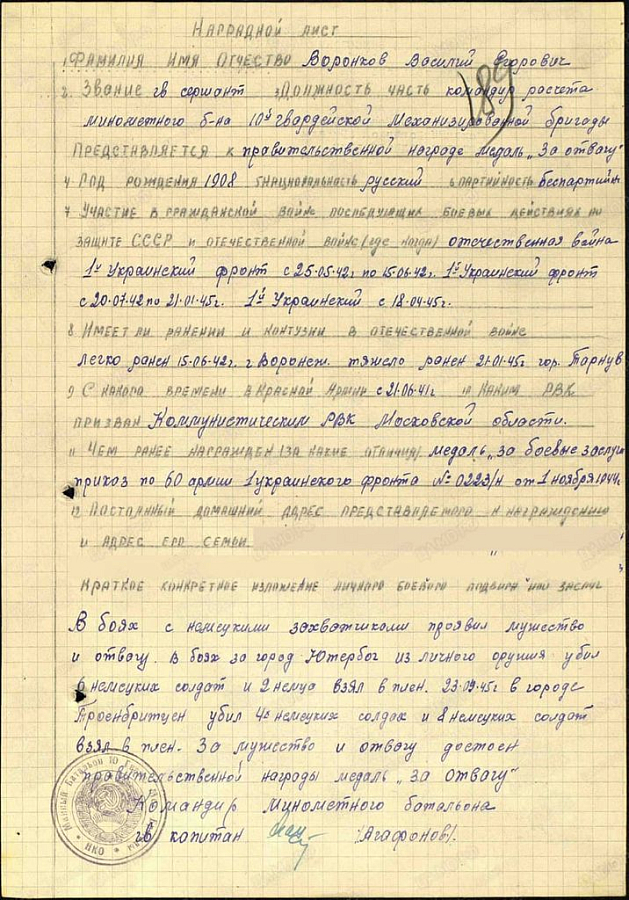 НАГРАДНОЙ ЛИСТ
1. ФАМИЛИЯ ИМЯ ОТЧЕСТВО Воронков Василий Егорович
189
2. ЗВАНИЕ гв сержант 3 ДОЛЖНОСТЬ ЧАСТЬ командир расчета
минометного б-на 10й гвардейской Механизированной бригады
ПРЕДСТАВЛЯЕТСЯ К правительственной награде медаль „За отвагу"
4 ГОД РОЖДЕНИЯ 1908 5 НАЦИОНАЛЬНОСТЬ русский 6 ПАРТИЙНОСТЬ беспартийн
7 УЧАСТИЕ В ГРАЖДАНСКОЙ ВОЙНЕ ПОСЛЕДУЮЩИХ БОЕВЫХ ДЕЙСТВИЯХ ПО
ЗАЩИТЕ СССР И ОТЕЧЕСТВЕННОЙ ВОЙНЕ (где когда) отечественная война
1й Украинский фронт с 25-05-42г по 15-06-42г. 1й Украинский фронт
с 20-07-42 по 21-01-45г. 1й Украинский с 18-04-45г.
8 ИМЕЕТ ЛИ РАНЕНИИ И КОНТУЗИИ В ОТЕЧЕСТВЕННОЙ ВОЙНЕ
легко ранен 15-06-42г. г Воронеж. тяжело ранен 21-01-45г гор. Тарнув
9 С КАКОГО ВРЕМЕНИ В КРАСНОЙ АРМИИ с 21-06-41г 10 КАКИМ РВК
ПРИЗВАН Коммунистическим РВК Московской области.
11 ЧЕМ РАНЕЕ НАГРАЖДЕН (ЗА КАКИЕ ОТЛИЧИЯ) медаль „за боевые заслуги
приказ по 60 армии 1 украинского фронта № 0223/н от 1 ноября 1944г
12 ПОСТОЯННЫЙ ДОМАШНИЙ АДРЕС ПРЕДСТАВЛЯЕМОГО К НАГРАЖДЕНИЮ
И АДРЕС ЕГО СЕМЬИ.
КРАТКОЕ КОНКРЕТНОЕ ИЗЛОЖЕНИЕ ЛИЧНОГО БОЕВОГО ПОДВИГА ИЛИ ЗАСЛУГ
В боях с немецкими захватчиками проявил мужество
и отвагу. В боях за город Ютербог из личного оружия убил
6 немецких солдат и 2 немца взял в плен. 23-04-45г в городе
Троенбритцен убил 4х немецких солдат и 8 немецких солдат
взял в плен. За мужество и отвагу достоен
правительственной награды медаль „за отвагу"
Командир Минометного батальона
гв капитан (Агафонов).